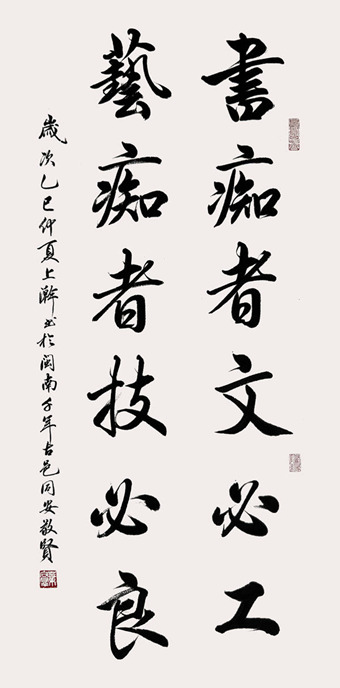 書痴者文必工
藝痴者技必良
歲次乙巳仲夏上澣書於閩南千年古邑同安敬賢